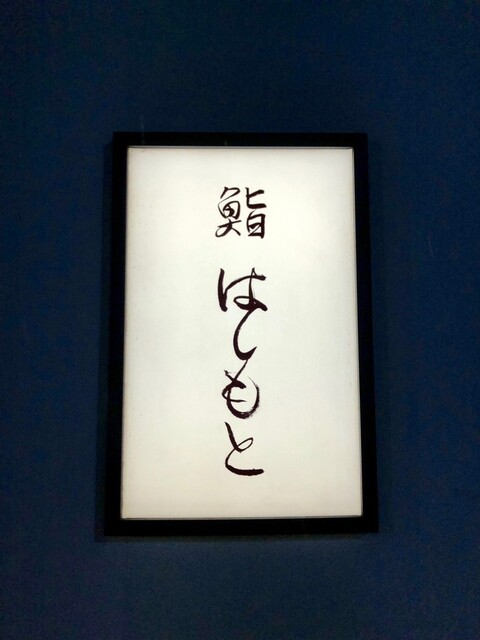 鮨 はしもと